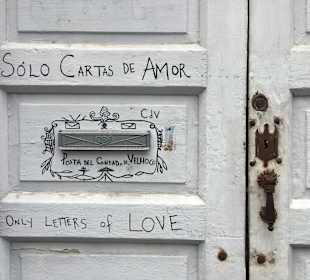 SÓLO CARTAS DE AMOR
CdV
POSTA DEL CONDADO VELHOCO
ONLY LETTERS OF LOVE